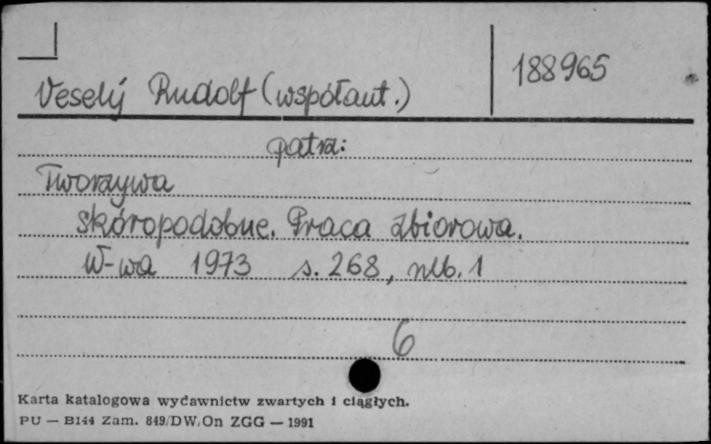 188965
Veselý Rudolf (współaut.)
patrz:
Tworzywa
skóropodobne. Praca zbiorowa.
W-wa 1973 s. 268, nlb. 1
6
Karta katalogowa wydawnictw zwartych i ciągłych.
PU — B144 Zam. 849/DW/On ZGG — 1991